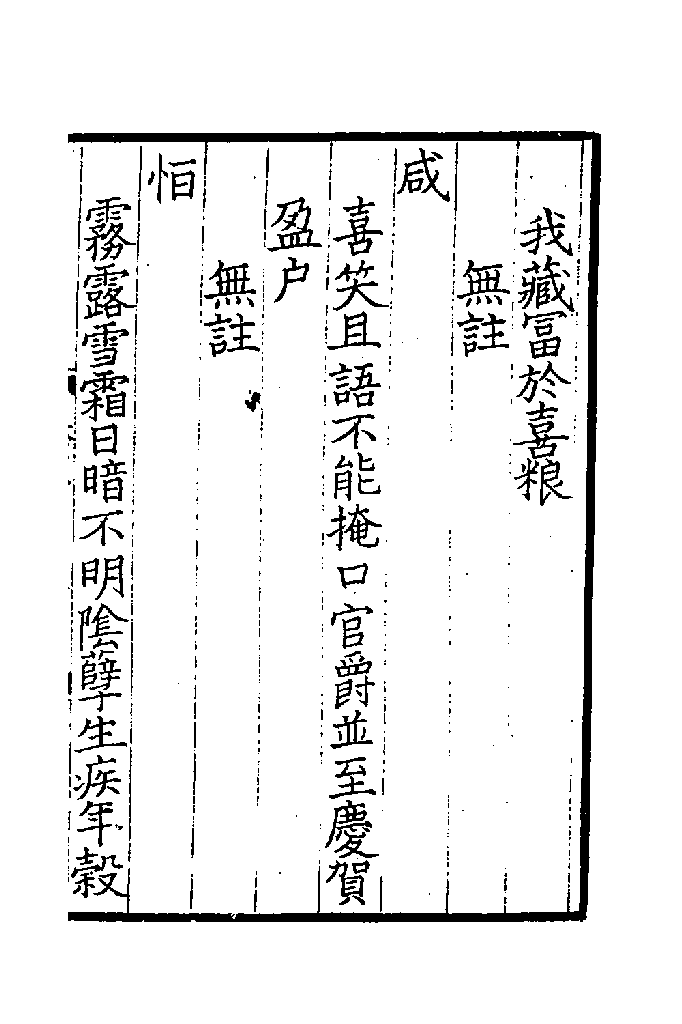 我藏冨於喜粮
無註
咸
喜笑且語不能掩口官爵並至慶賀
盈户
無註
恒
霧露雪霜日暗不明隂孽生疾年穀